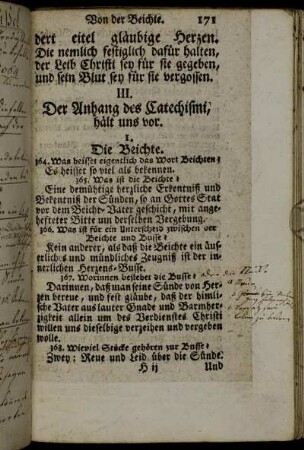 Von der Beichte. 171
dert eitel gläubige Herzen.
Die nemlich festiglich dafür halten,
der Leib Christi sey für sie gegeben,
und sein Blut sey für sie vergossen.
III.
Der Anhang des Catechismi,
hält uns vor.
1.
Die Beichte.
364. Was heisset eigentlich das Wort Beichten?
Es heisset so viel als bekennen.
365. Was ist die Beichte?
Eine demühtige herzliche Erkentniß und
Bekentniß der Sünden, so an Gottes Stat
vor dem Beicht-Vater geschicht, mit ange-
hefteter Bitte um derselben Vergebung.
366. Was ist für ein Unterscheid zwischen der
Beichte und Busse?
Kein anderer, als daß die Beichte ein äus-
serliches und mündliches Zeugniß ist der in-
nerlichen Herzens-Busse.
367. Worinnen bestehet die Busse?
Darinnen, daß man seine Sünde von Her-
zen bereue, und fest gläube, daß der himli-
sche Vater aus lauter Gnade und Barmher-
zigkeit allein um des Verdienstes Christi
willen uns dieselbige verzeihen und vergeben
wolle.
368. Wieviel Stücke gehören zur Busse?
Zwey: Reue und Leid über die Sünde.
H ij Und